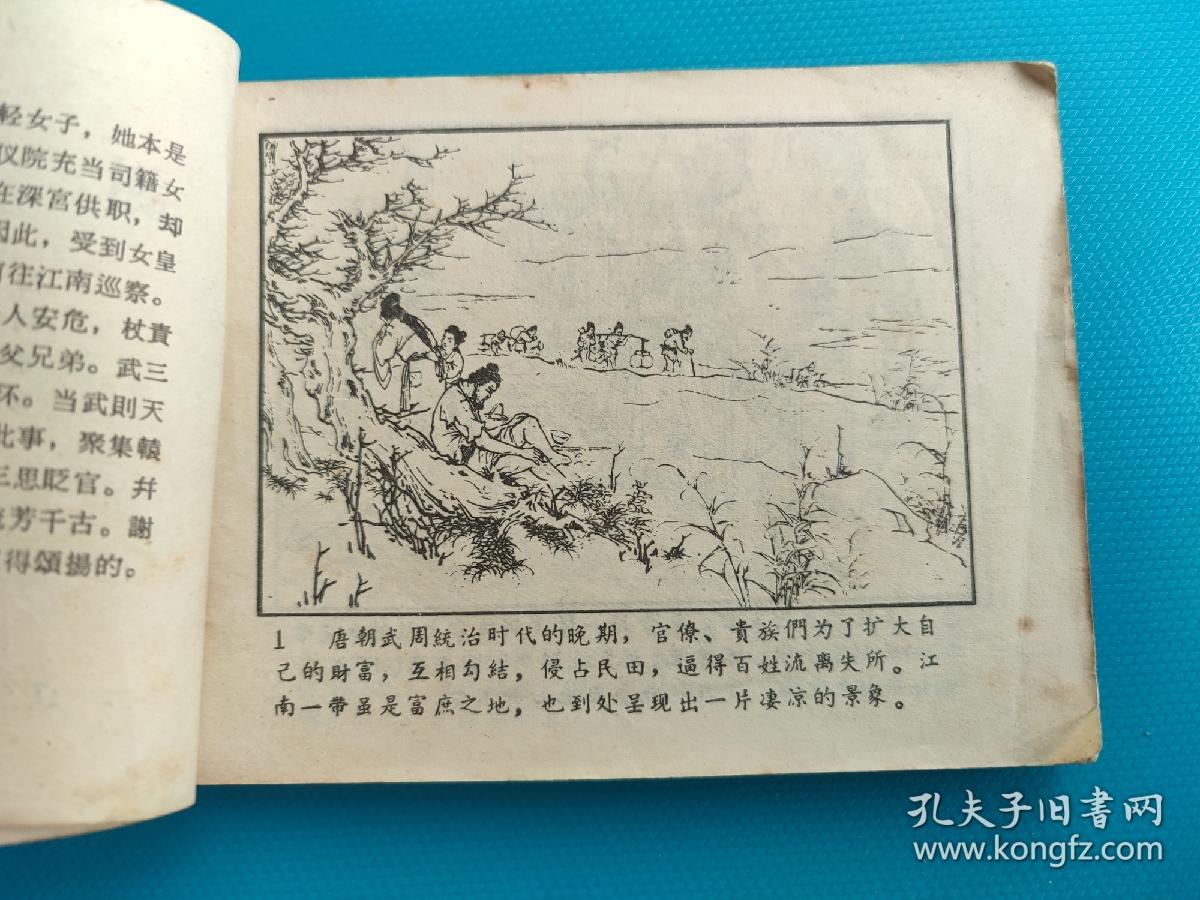 轻女子，她本是
仪院充当司籍女
在深宫供职，却
因此，受到女皇
往江南巡察。
人安危，杖責
父兄弟。武三
怀。当武則天
此事，聚集轅
三思貶官。幷
流芳千古。謝
得頌揚的。
1 唐朝武周統治时代的晚期，官僚、貴族們为了扩大自
己的財富，互相勾結，侵占民田，逼得百姓流离失所。江
南一帶虽是富庶之地，也到处呈现出一片凄凉的景象。
孔夫子旧書网
www.kongfz.com